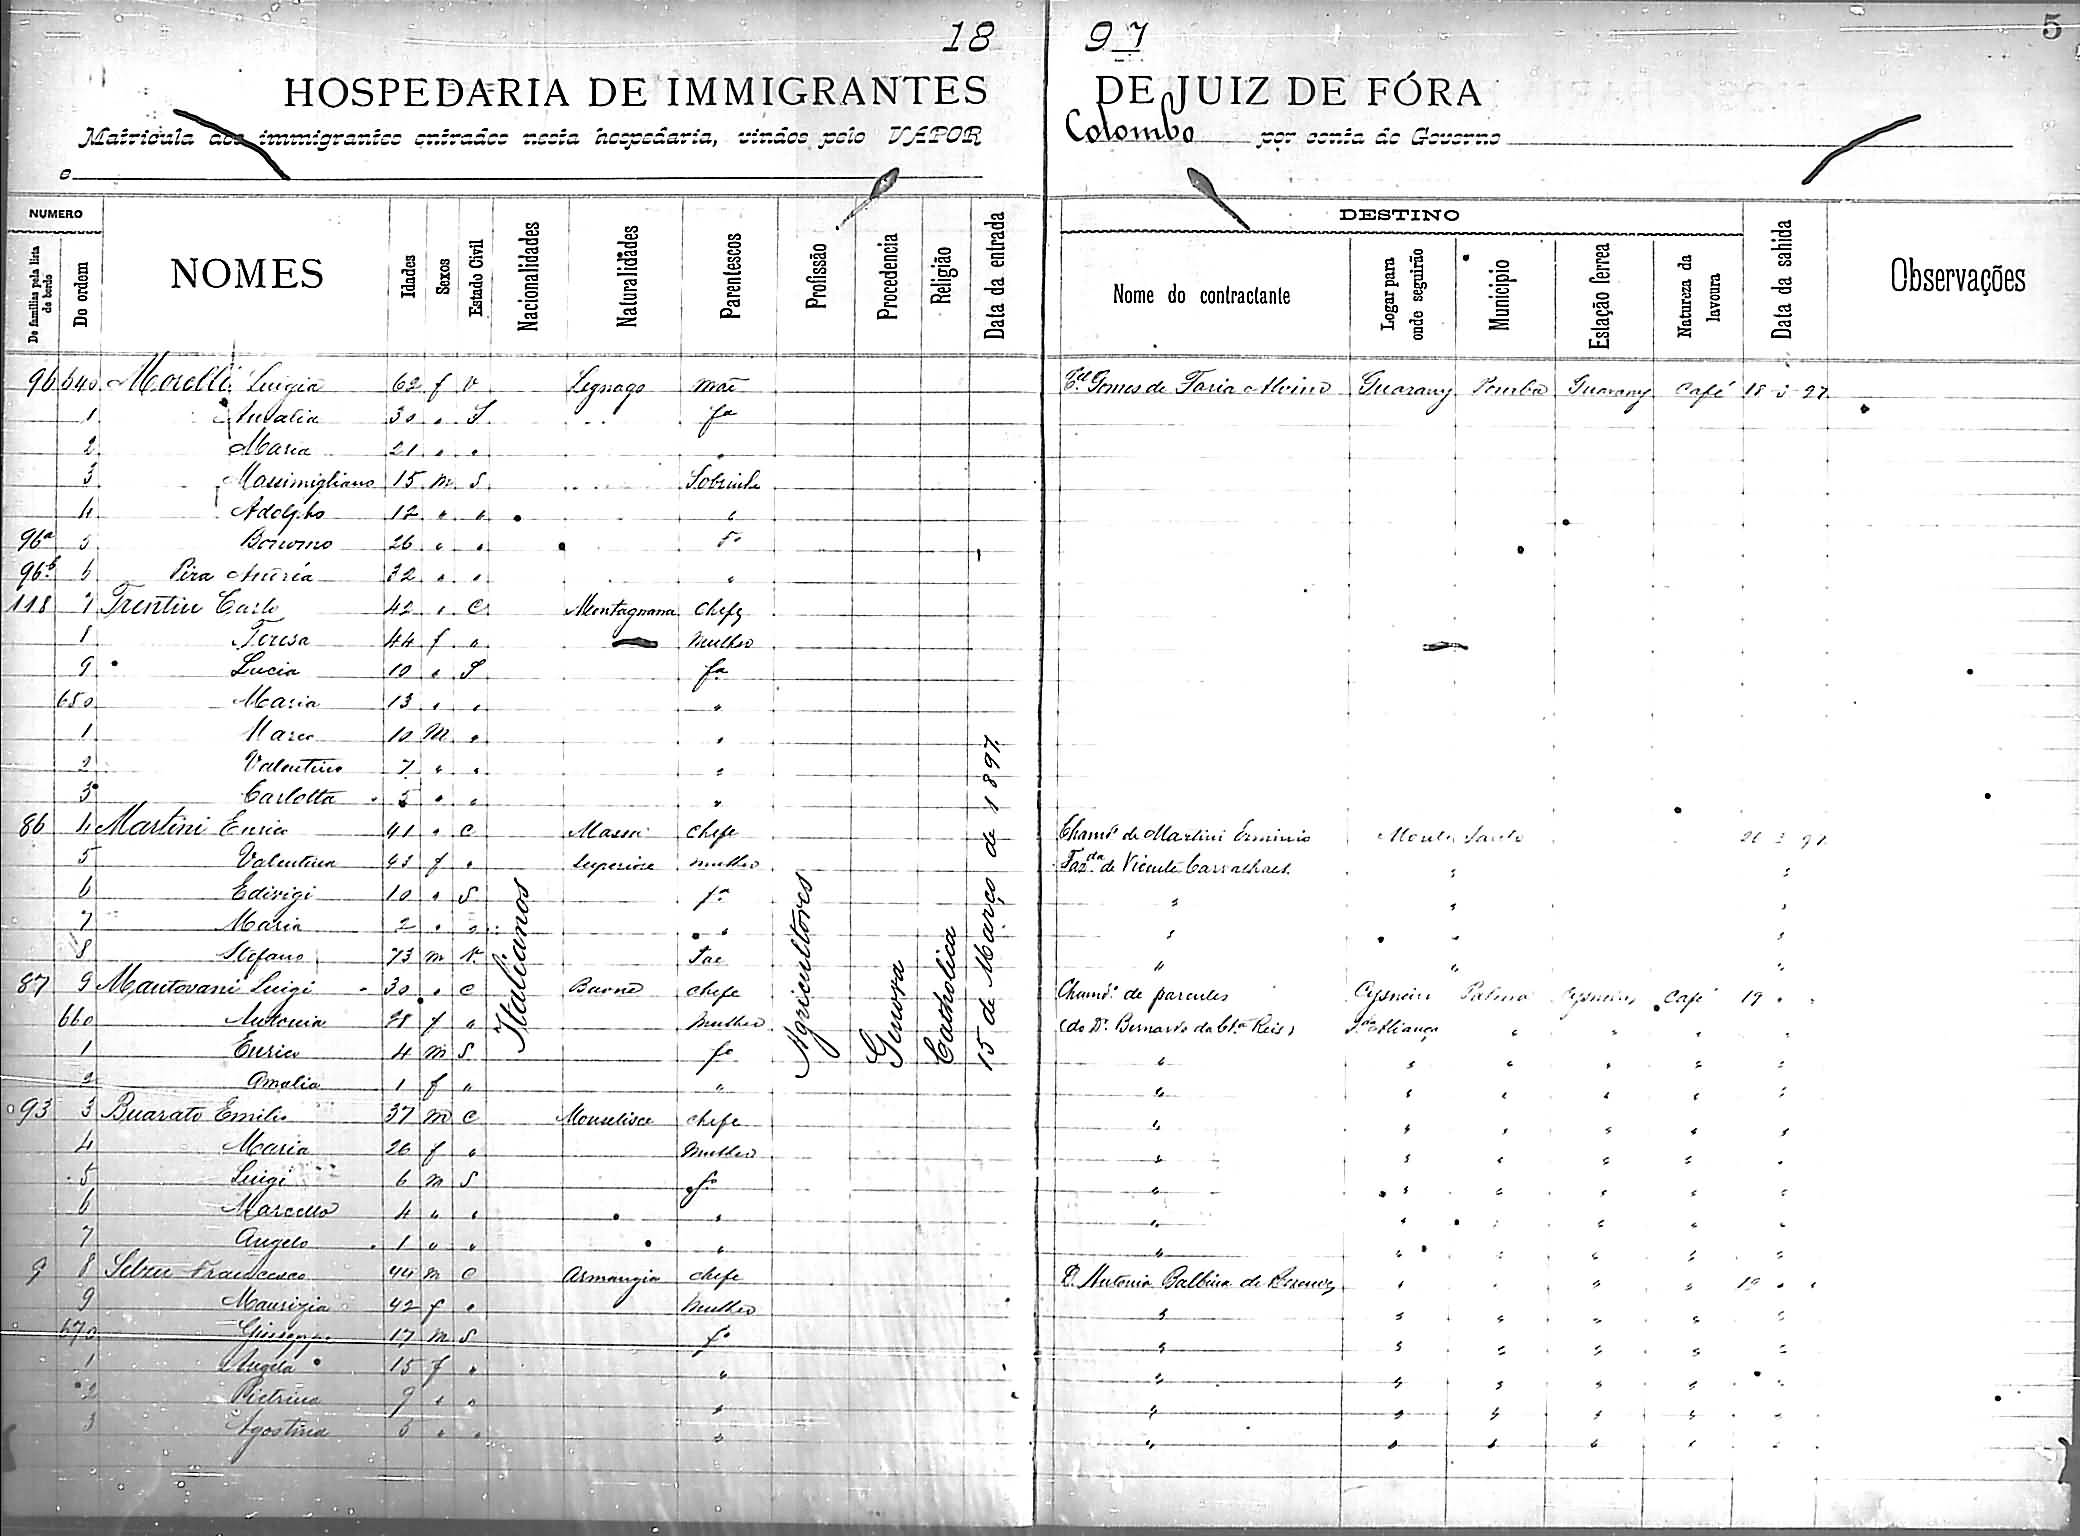 18 97 5
HOSPEDARIA DE IMMIGRANTES DE JUIZ DE FÓRA
Matricula dos immigrantes entrados nesta hospedaria, vindos pelo VAPOR Colombo por conta do Governo
e
NUMERO
De familias pela lista de bordo
Do ordem
NOMES
Idades
Sexos
Estado Civil
Nacionalidades
Naturalidades
Parentescos
Profissão
Procedencia
Religião
Data da entrada
DESTINO
Nome do contractante
Logar para onde seguirão
Municipio
Estação ferrea
Natureza da lavoura
Data da sahida
Observações
96 640 Morelli Luigia 62 f v Legnago mãe Cel Gomes de Faria Alvino Guarany Pomba Guarany Café 18-3-97
1 30 " S fa
2 Maria 21 " "
3 Massimigliano 15 m S
4 Adolpho 12 " "
96a 5 Bonomo 26 " "
96b 6 Pira 32 " " "
118 7 Trentin Carlo 42 " C Montagnana Chefe
8 Teresa 44 f " Mulher
9 Lucia 10 " S fa
650 Maria 13 " " "
1 Marco 10 M " "
2 Valentino 7 " " "
3 Carlotta 5 " " "
86 4 Martini Enrico 41 " C Massa Chefe Chamo de Martini Erminio Monte Santo
5 Valentina 43 f " Superiore mulher Fazda de Vicente Carvalhaes
6 Edivigi 10 " S fa
7 Maria 2 " " "
8 Stefano 73 m V
87 9 Mantovani Luigi 30 " C Chefe Chamo de parentes Cysneiro Palma Cysneiro Café 19 " "
660 Antonia 28 f " Mulher (do Dr. Bernardo da Cta Reis) Alliança " " " "
1 Enrico 4 m S fo
2 Amalia 1 f " "
93 3 Buarato Emilio 37 m C Monselice chefe
4 Maria 26 f " Mulher
5 Luigi 6 m S fo
6 Marcello 4 " " "
7 Angelo 1 " " "
9 8 Francesco 44 m C Armungia chefe D. Antonia Balbina de " " " " 19 " "
9 Maurizia 42 f " Mulher
670 Giuseppe 17 m S fo
1 Angela 15 f " "
2 Pietrina 9 " " "
3 Agostina " " "
Italianos
Agricultores
Genova
Catholica
15 de Março de 1897